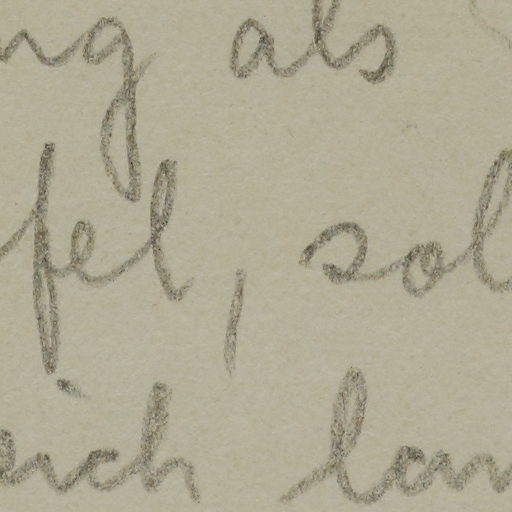 ng als
fel, sol
eich lan